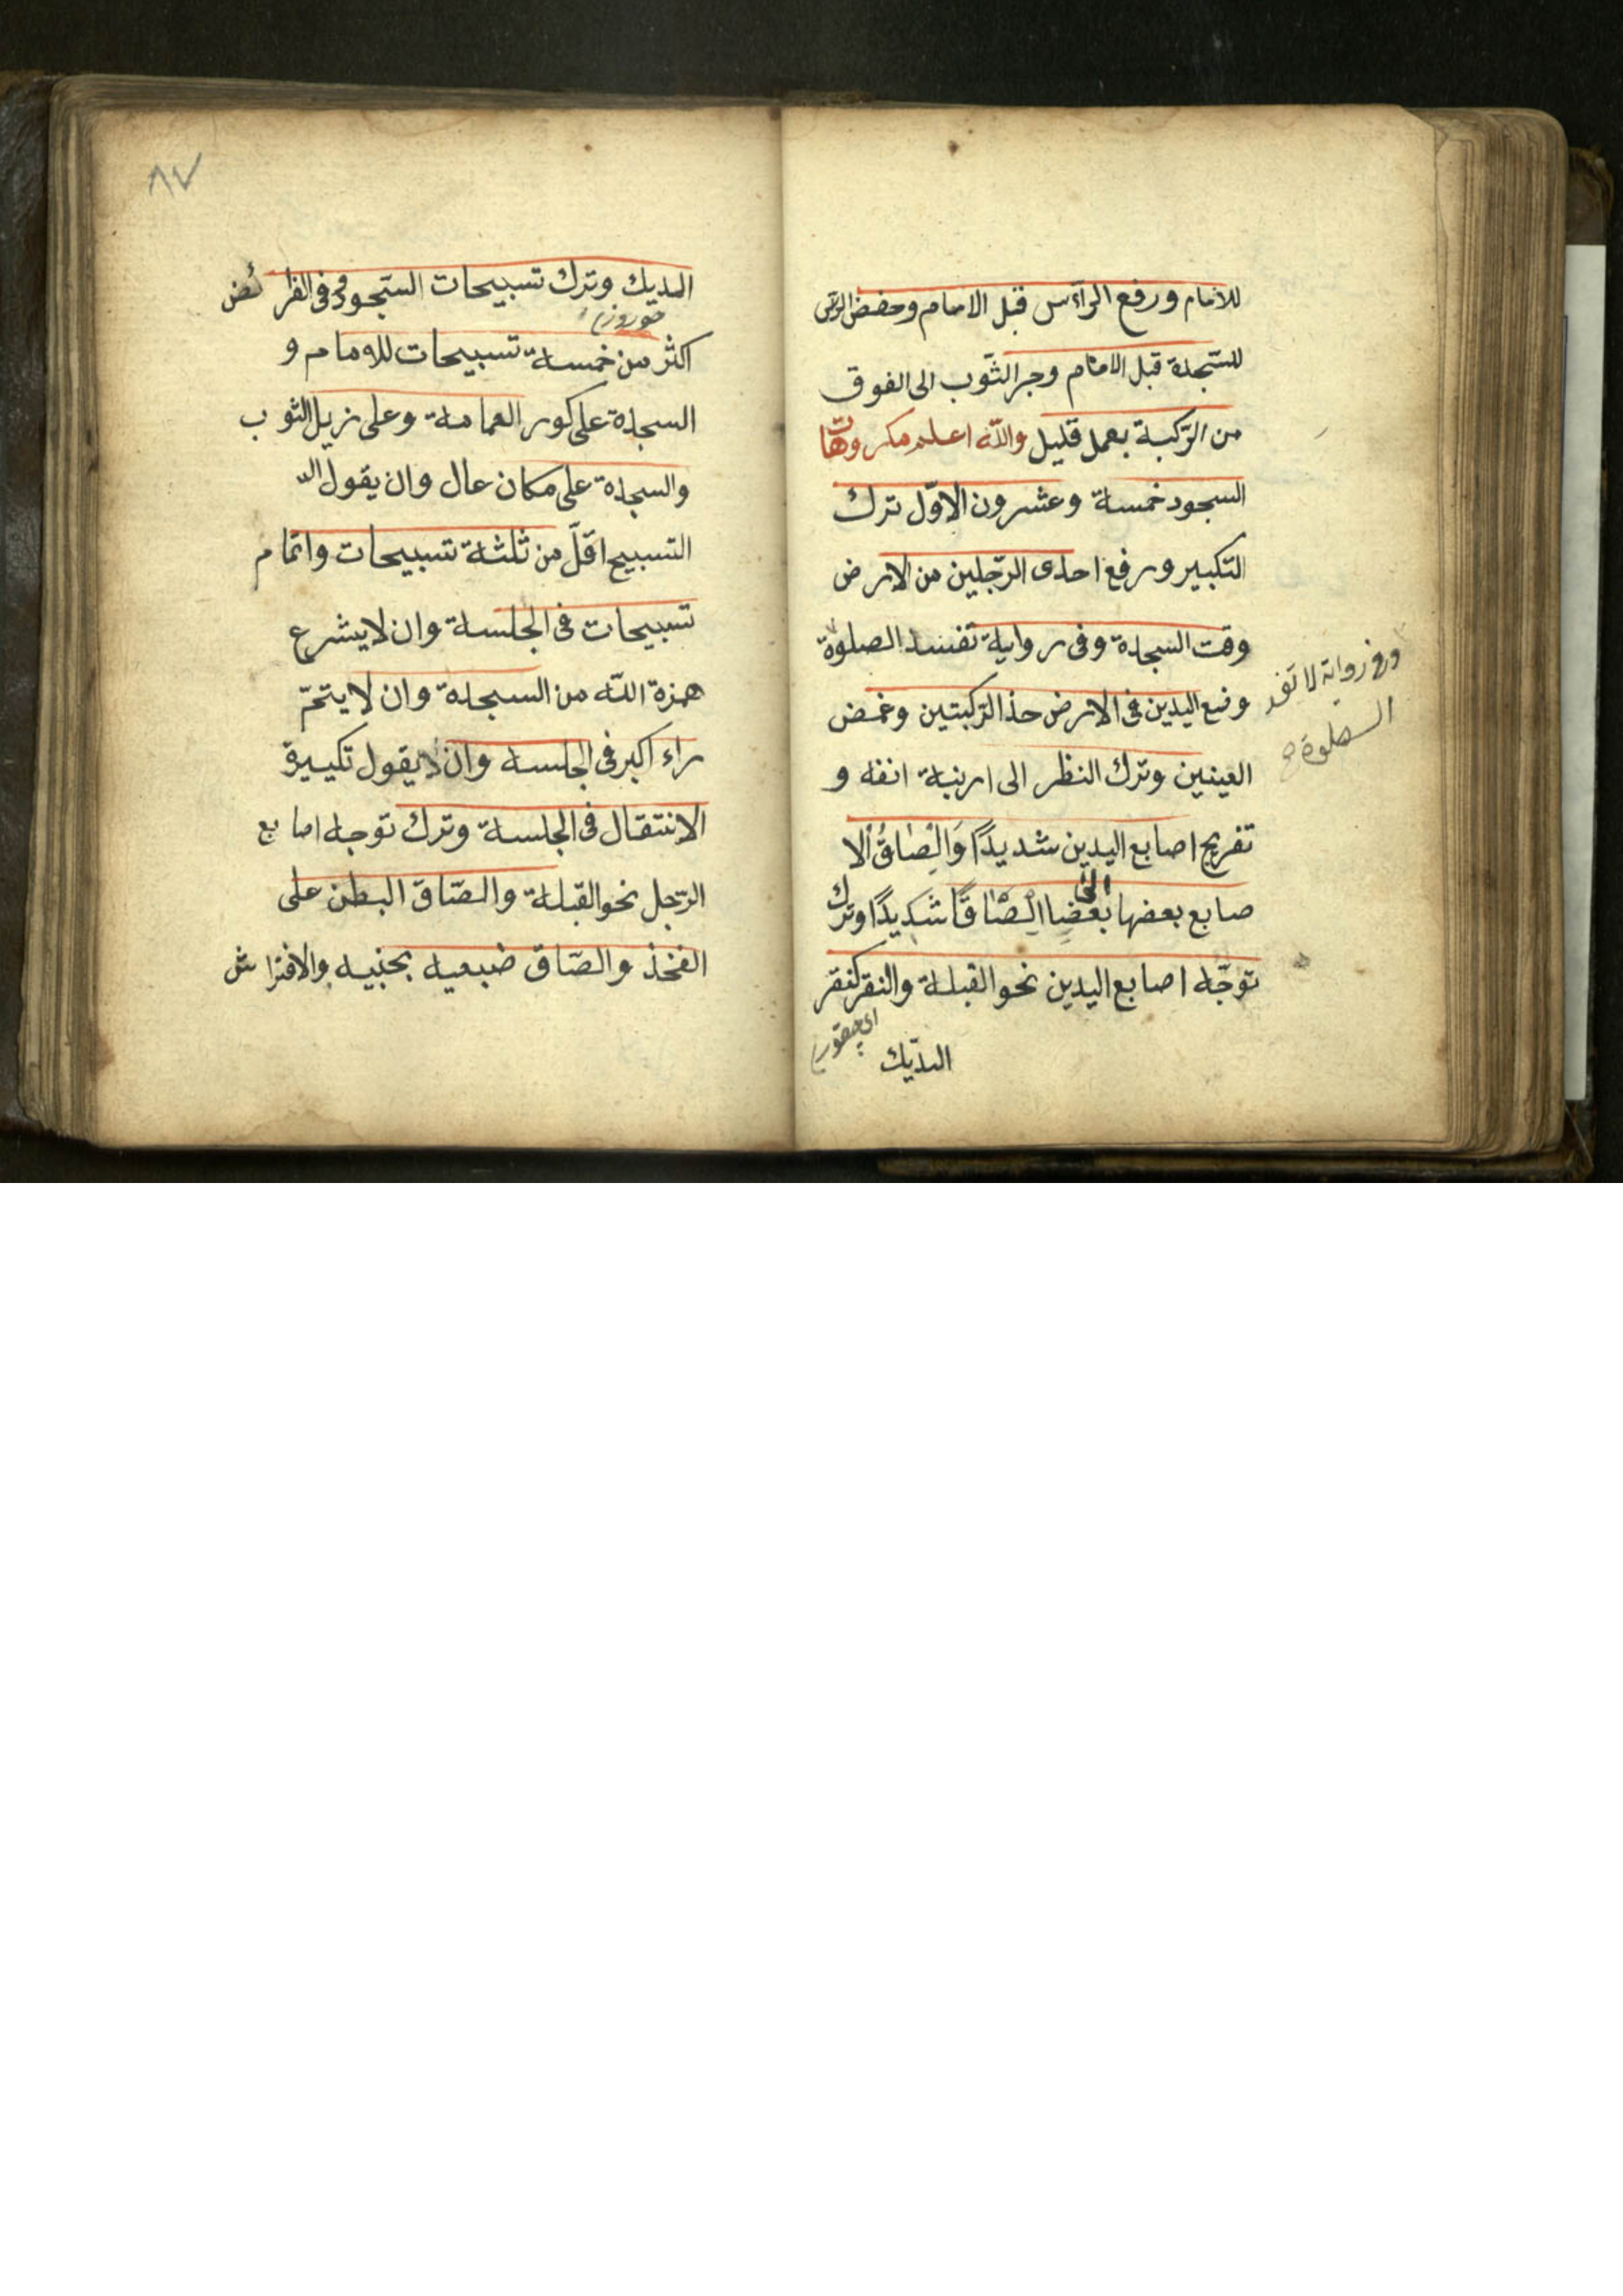 للامام ورفع الرأس قبل الامام وحفض الرأس
للسّجدة قبل الامام وجر الثّوب الى الفوق
من الرّكبة بعمل قليل والله اعلم مكروهات
السجود خمسة وعشرون الاوّل ترك
التكبير ورفع احدى الرّجلين من الارض
وقت السجدة وفى رواية تفسد الصلوة
وضع اليدين فى الارض حذ الرّكبتين وغمض
العينين وترك النظر الى ارنبة انفه و
تفريج اصابع اليدين شديدًا وَالِصٰاقُ الا
صابع بعضها الى بعضا اِلصٰاقًا شَدِيدًا وترك
توجّه اصابع اليدين نحو القبلة والنقر كنقر
الدّيك
وفى رواية لا تفسد
الصلوة
٨٧
الديك وترك تسبيحات السّجود فى الفرائض
اكثر من خمسة تسبيحات للامام و
السجدة على كور العمامة وعلى زيل الثوب
والسجدة على مكان عال وان يقول
التسبيح اقلّ من ثلثة تسبيحات واتمام
تسبيحات فى الجلسة وان لا يشرع
همزة الله من السجدة وان لا يتمّ
راء اكبر فى الجلسه وان لا يقول تكبيرة
الانتقال فى الجلسة وترك توجه اصابع
الرّجل نحو القبلة والصّاق البطن على
الفخذ والصّاق ضبعيه بجنبيه والافتراش